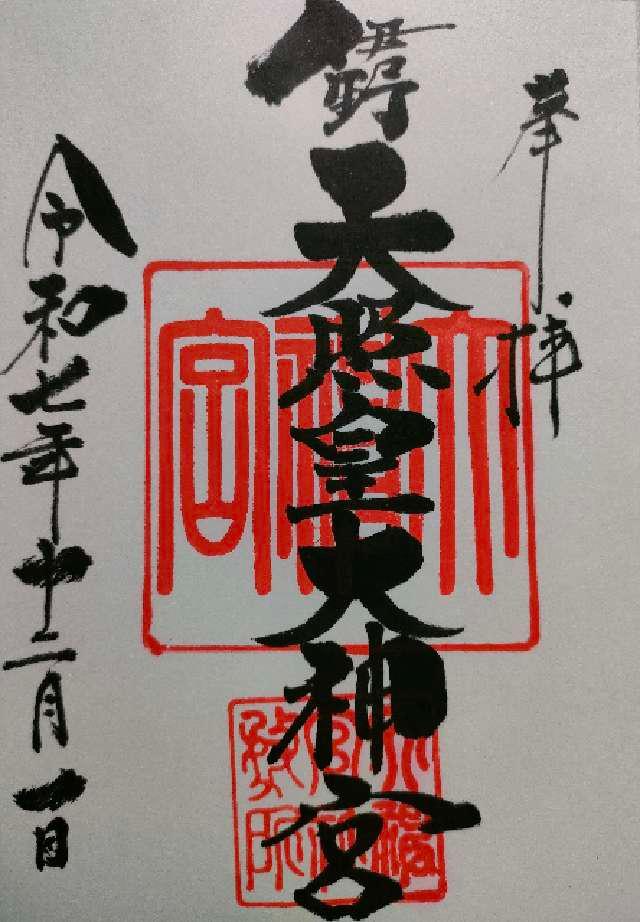 奉拝
伊野天照皇大神宮
大神宮
令和七年十二月一日